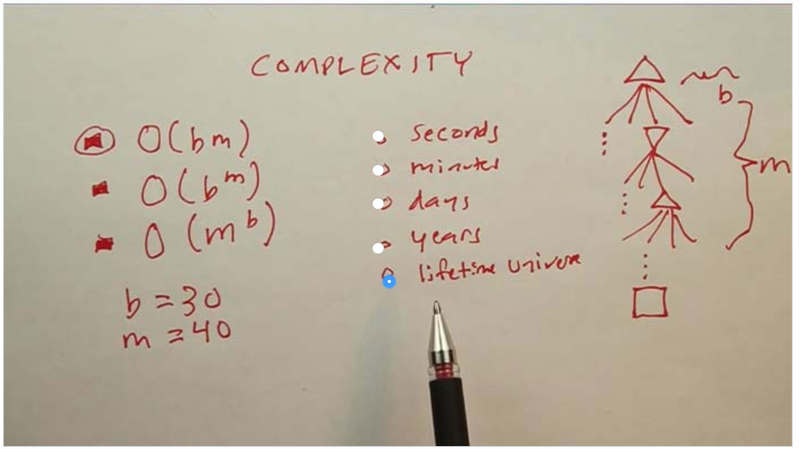 COMPLEXITY
O(bm)
O(b^m)
O(m^b)
b = 30
m = 40
seconds
minutes
days
years
lifetime universe
b
m